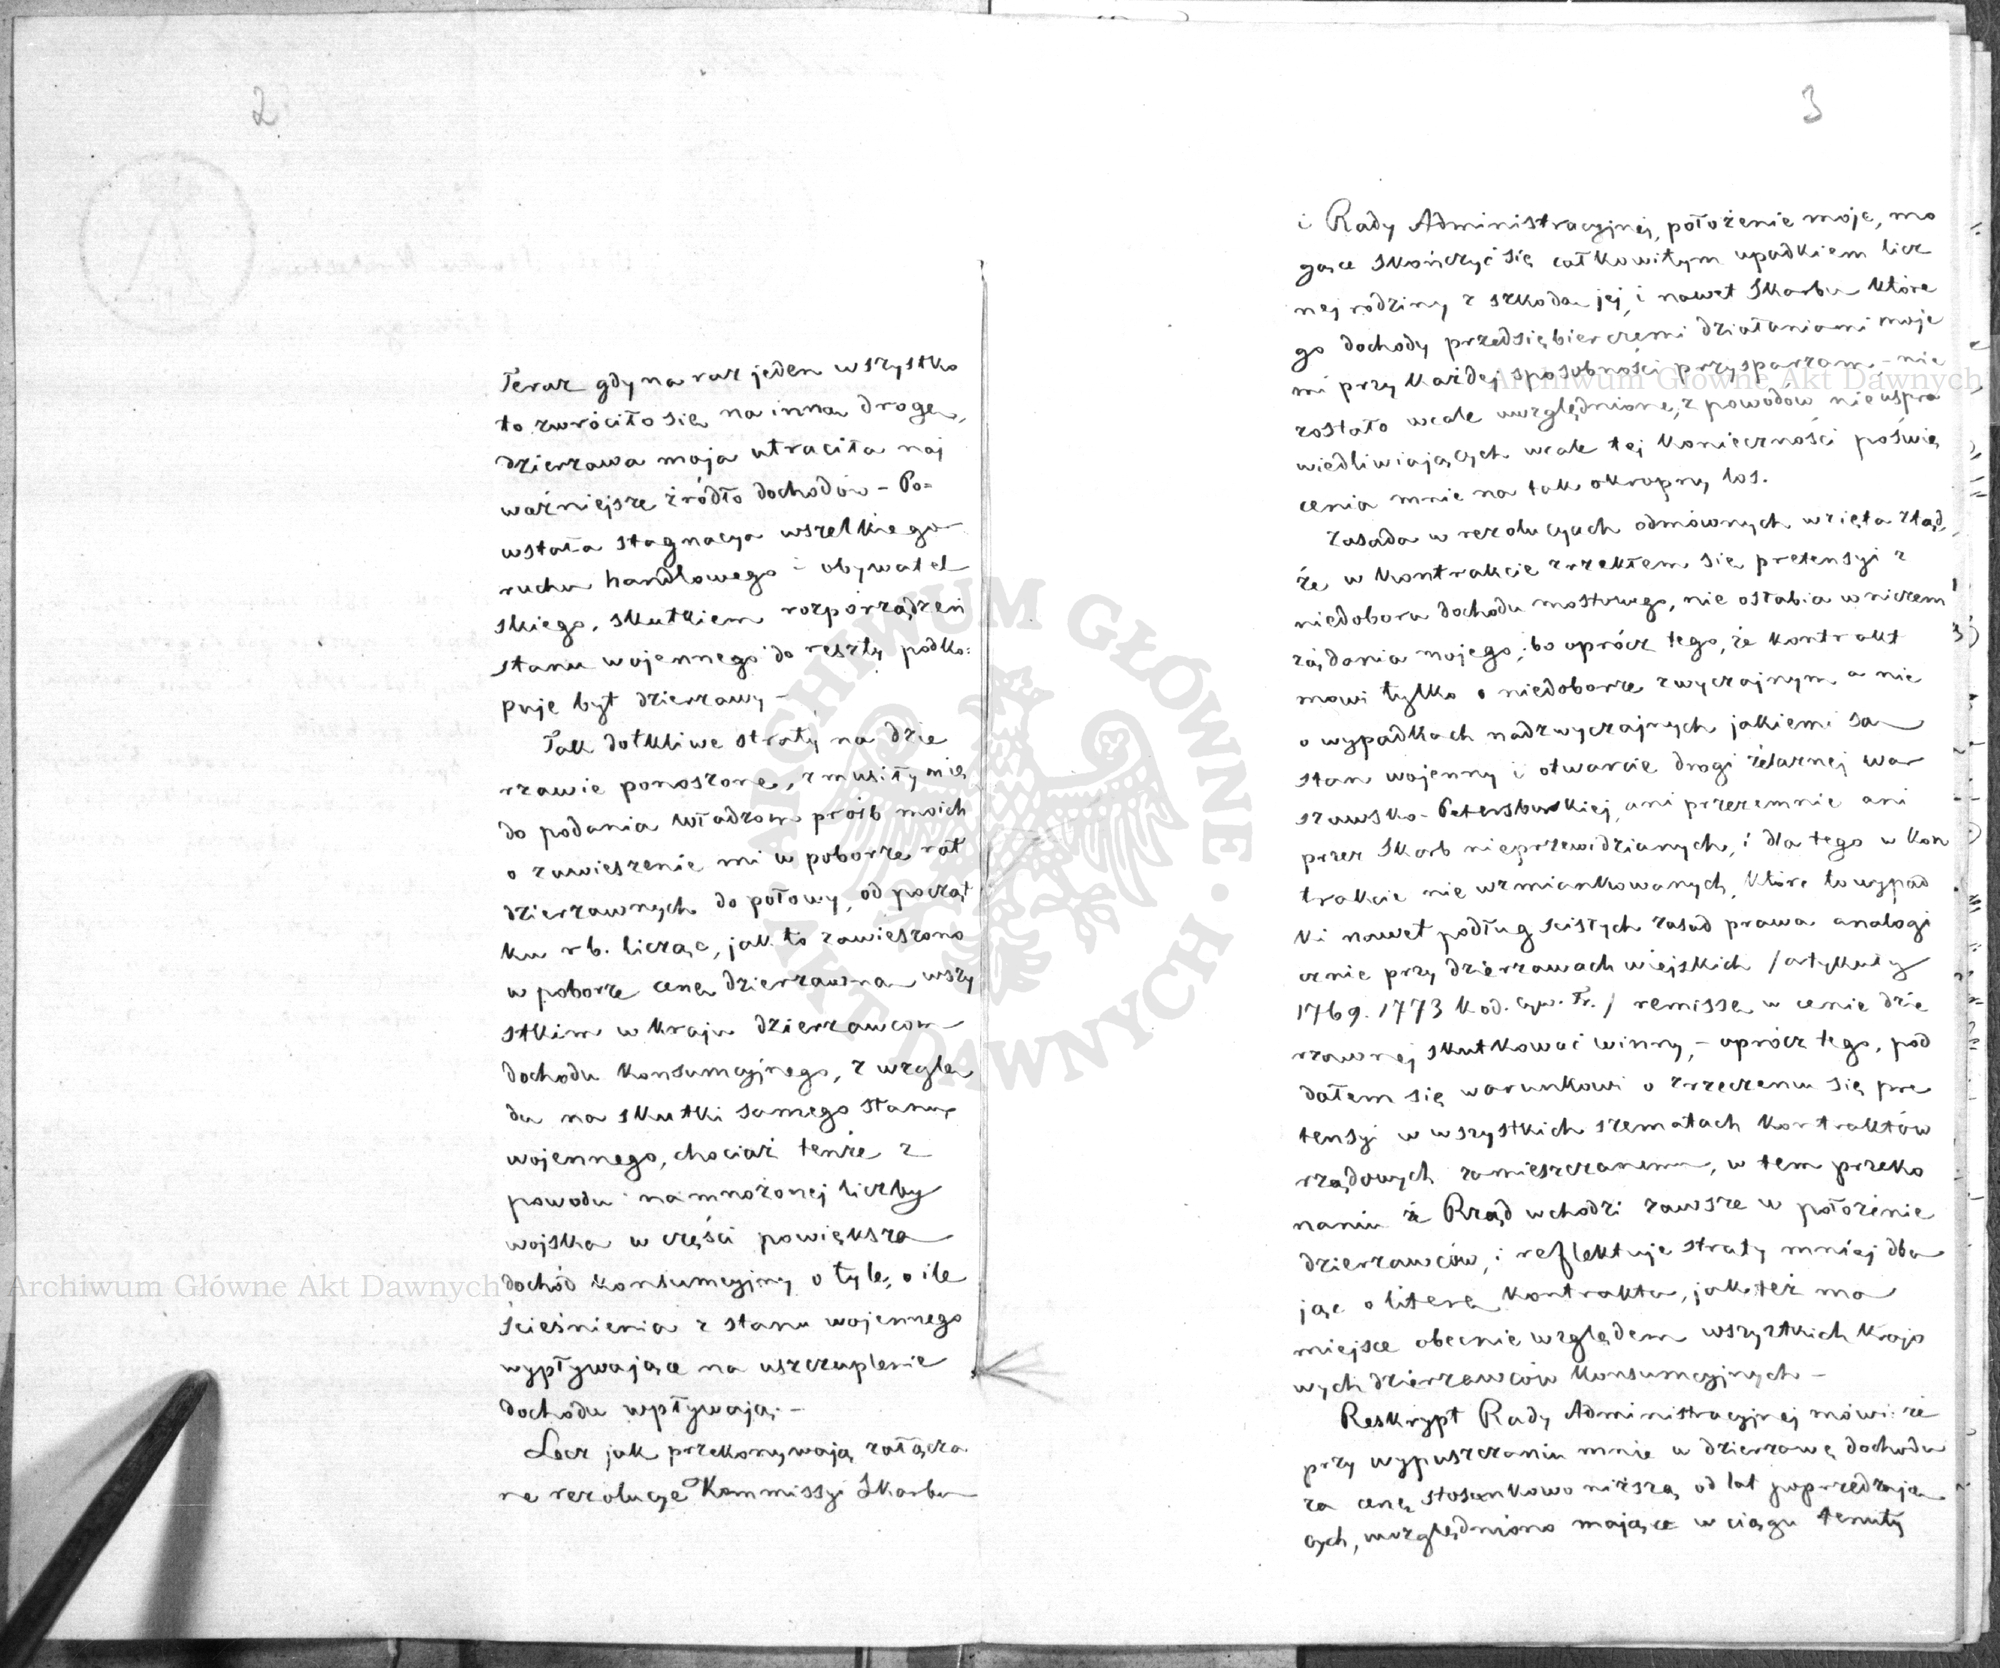 2
Teraz gdy na raz jeden wszystko
to zwróciło się na inną drogę,
dzierzawa moja utraciła naj
ważniejsze źródło dochodów – Po=
wstała stagnacya wszelkiego
ruchu handlowego i obywatel
skiego, skutkiem rozporządzeń
stanu wojennego do reszty podko=
puje byt dzierzawy –
Tak dotkliwe straty na dzie
rzawie ponoszone, zmusiły mię
do podania Władzom prośb moich
o zawieszenie mi w poborze rat
dzierzawnych do połowy, od począt
ku r b. licząc, jak to zawieszono
w poborze cenę dzierzawną wszy
stkim w kraju dzierzawcom
dochodu konsumcyjnego, z wzglę
du na skutki samego stanu
wojennego, chociaż tenże z
powodu namnożonej liczby
wojska w części powiększa
dochód konsumcyjny o tyle, o ile
ścieśnienia z stanu wojennego
wypływające na uszczuplenie
dochodu wpływają. –
Lecz jak przekonywają załącza
ne rezolucye Kommissyi Skarbu
3
i Rady Administracyjnej, położenie moje, mo
gące skończyć się całkowitym upadkiem licz
nej rodziny z szkodą jej, i nawet Skarbu które
go dochody przedsiębierczemi działaniami moje
mi przy każdej sposobności przysparzam, – nie
zostało wcale uwzględnione, z powodów nieuspra
wiedliwiających wcale tej konieczności poświę
cenia mnie na tak okropny los.
Zasada w rezolucyach odmównych wzięta ztąd,
że w kontrakcie zrzekłem się pretensyi z
niedoboru dochodu mostowego, nie osłabia w niczem
żądania mojego, bo oprócz tego, że kontrakt
mówi tylko o niedoborze zwyczajnym a nie
o wypadkach nadzwyczajnych jakiemi są
stan wojenny i otwarcie drogi żelaznej War
szawsko-Petersburskiej, ani przezemnie ani
przez Skarb nieprzewidzianych, i dla tego w kon
trakcie nie wzmiankowanych, które to wypad
ki nawet podług ścisłych zasad prawa analogi
cznie przy dzierzawach wiejskich /artykuły
1769. 1773 Kod. cyw. Fr./ remissę w cenie dzie
rzawnej skutkować winny, – oprócz tego, pod
dałem się warunkowi o zrzeczeniu się pre
tensyi w wszystkich szematach kontraktów
rządowych zamieszczanemu, w tem przeko
naniu że Rząd wchodzi zawsze w położenie
dzierzawców, i reflektuje straty mniej dba
jąc o literę kontraktu, jak też ma
miejsce obecnie względem wszystkich krajo
wych dzierzawców konsumcyjnych –
Reskrypt Rady Administracyjnej mówi: że
przy wypuszczaniu mnie w dzierzawę dochodu
za cenę stosunkowo niższą od lat poprzedzają
cych, uwzględniono mające w ciągu tenuty
Archiwum Główne Akt Dawnych
Archiwum Główne Akt Dawnych
ARCHIWUM GŁÓWNE · AKT DAWNYCH ·